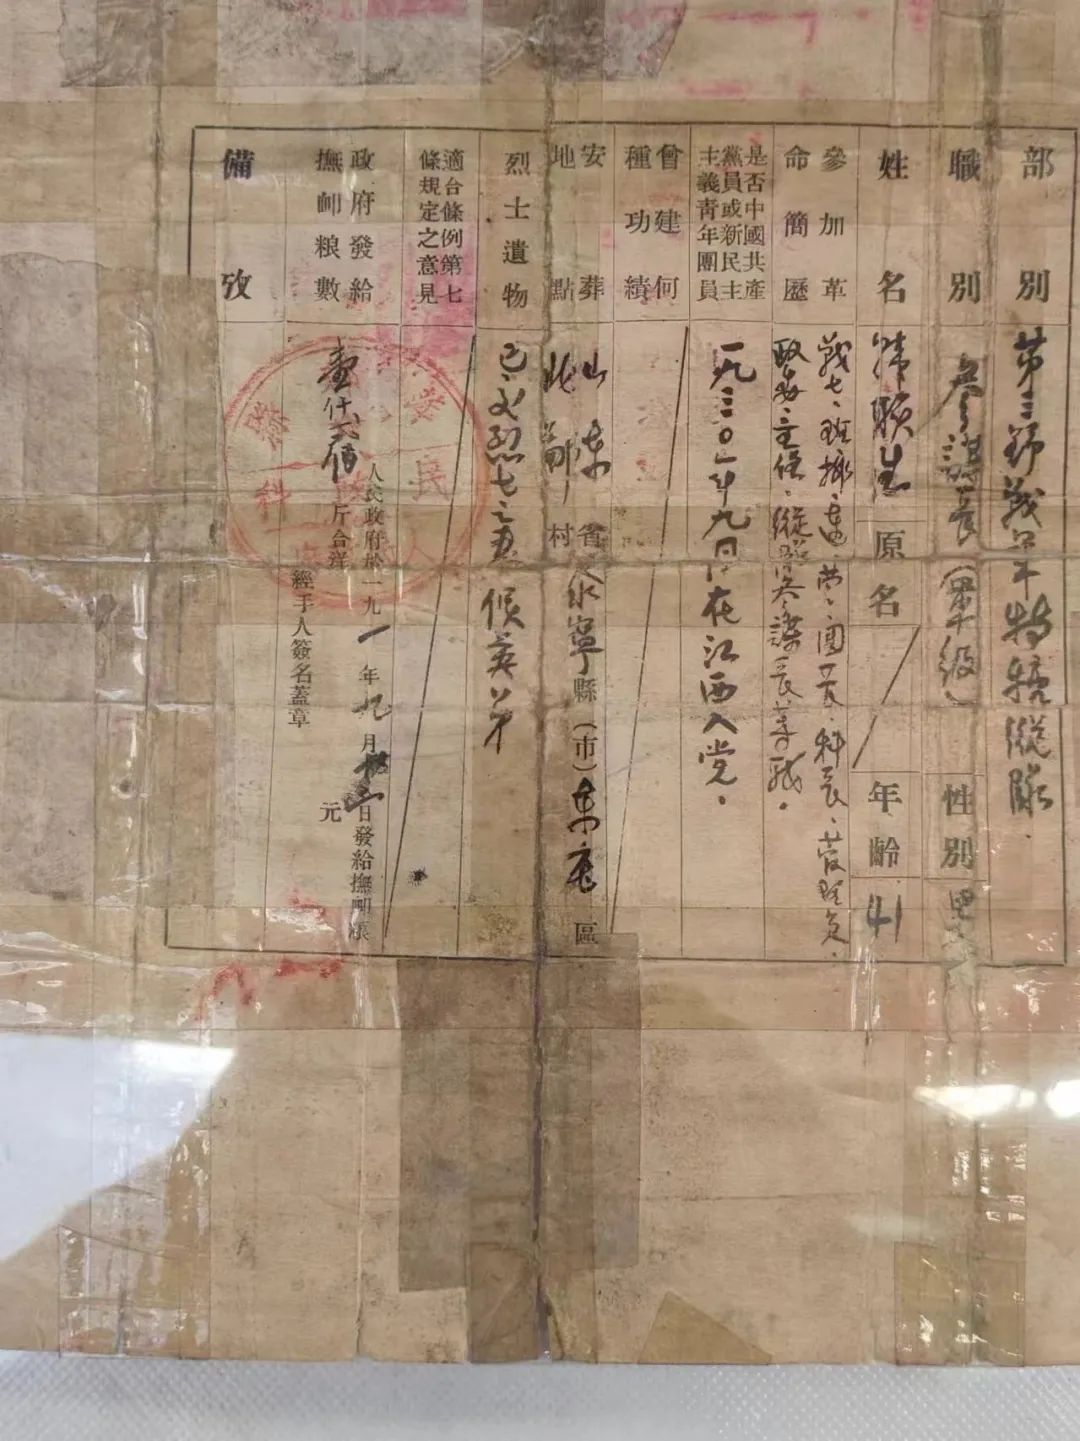 部別 第三野战军特務縱隊.
職別 參謀長(軍級) 性別 男
姓名 原名 年齡 41
參加革命簡歷
战士、班、排、連、营、團長、科長
政委、主任、縱隊參謀長等职。
是否中國共產黨員或新民主主義青年團員 一九三〇年九月在江西入党.
曾建何種功績
安葬地點 山东省 永寧縣(市)東庄區 村
烈士遺物 已交烈士之妻 侯英
適合條例第七條規定之意見
政府發給撫卹粮數
壹仟
人民政府於一九 一年九月 日發給撫卹粮
斤合洋 元
經手人簽名蓋章
備攷